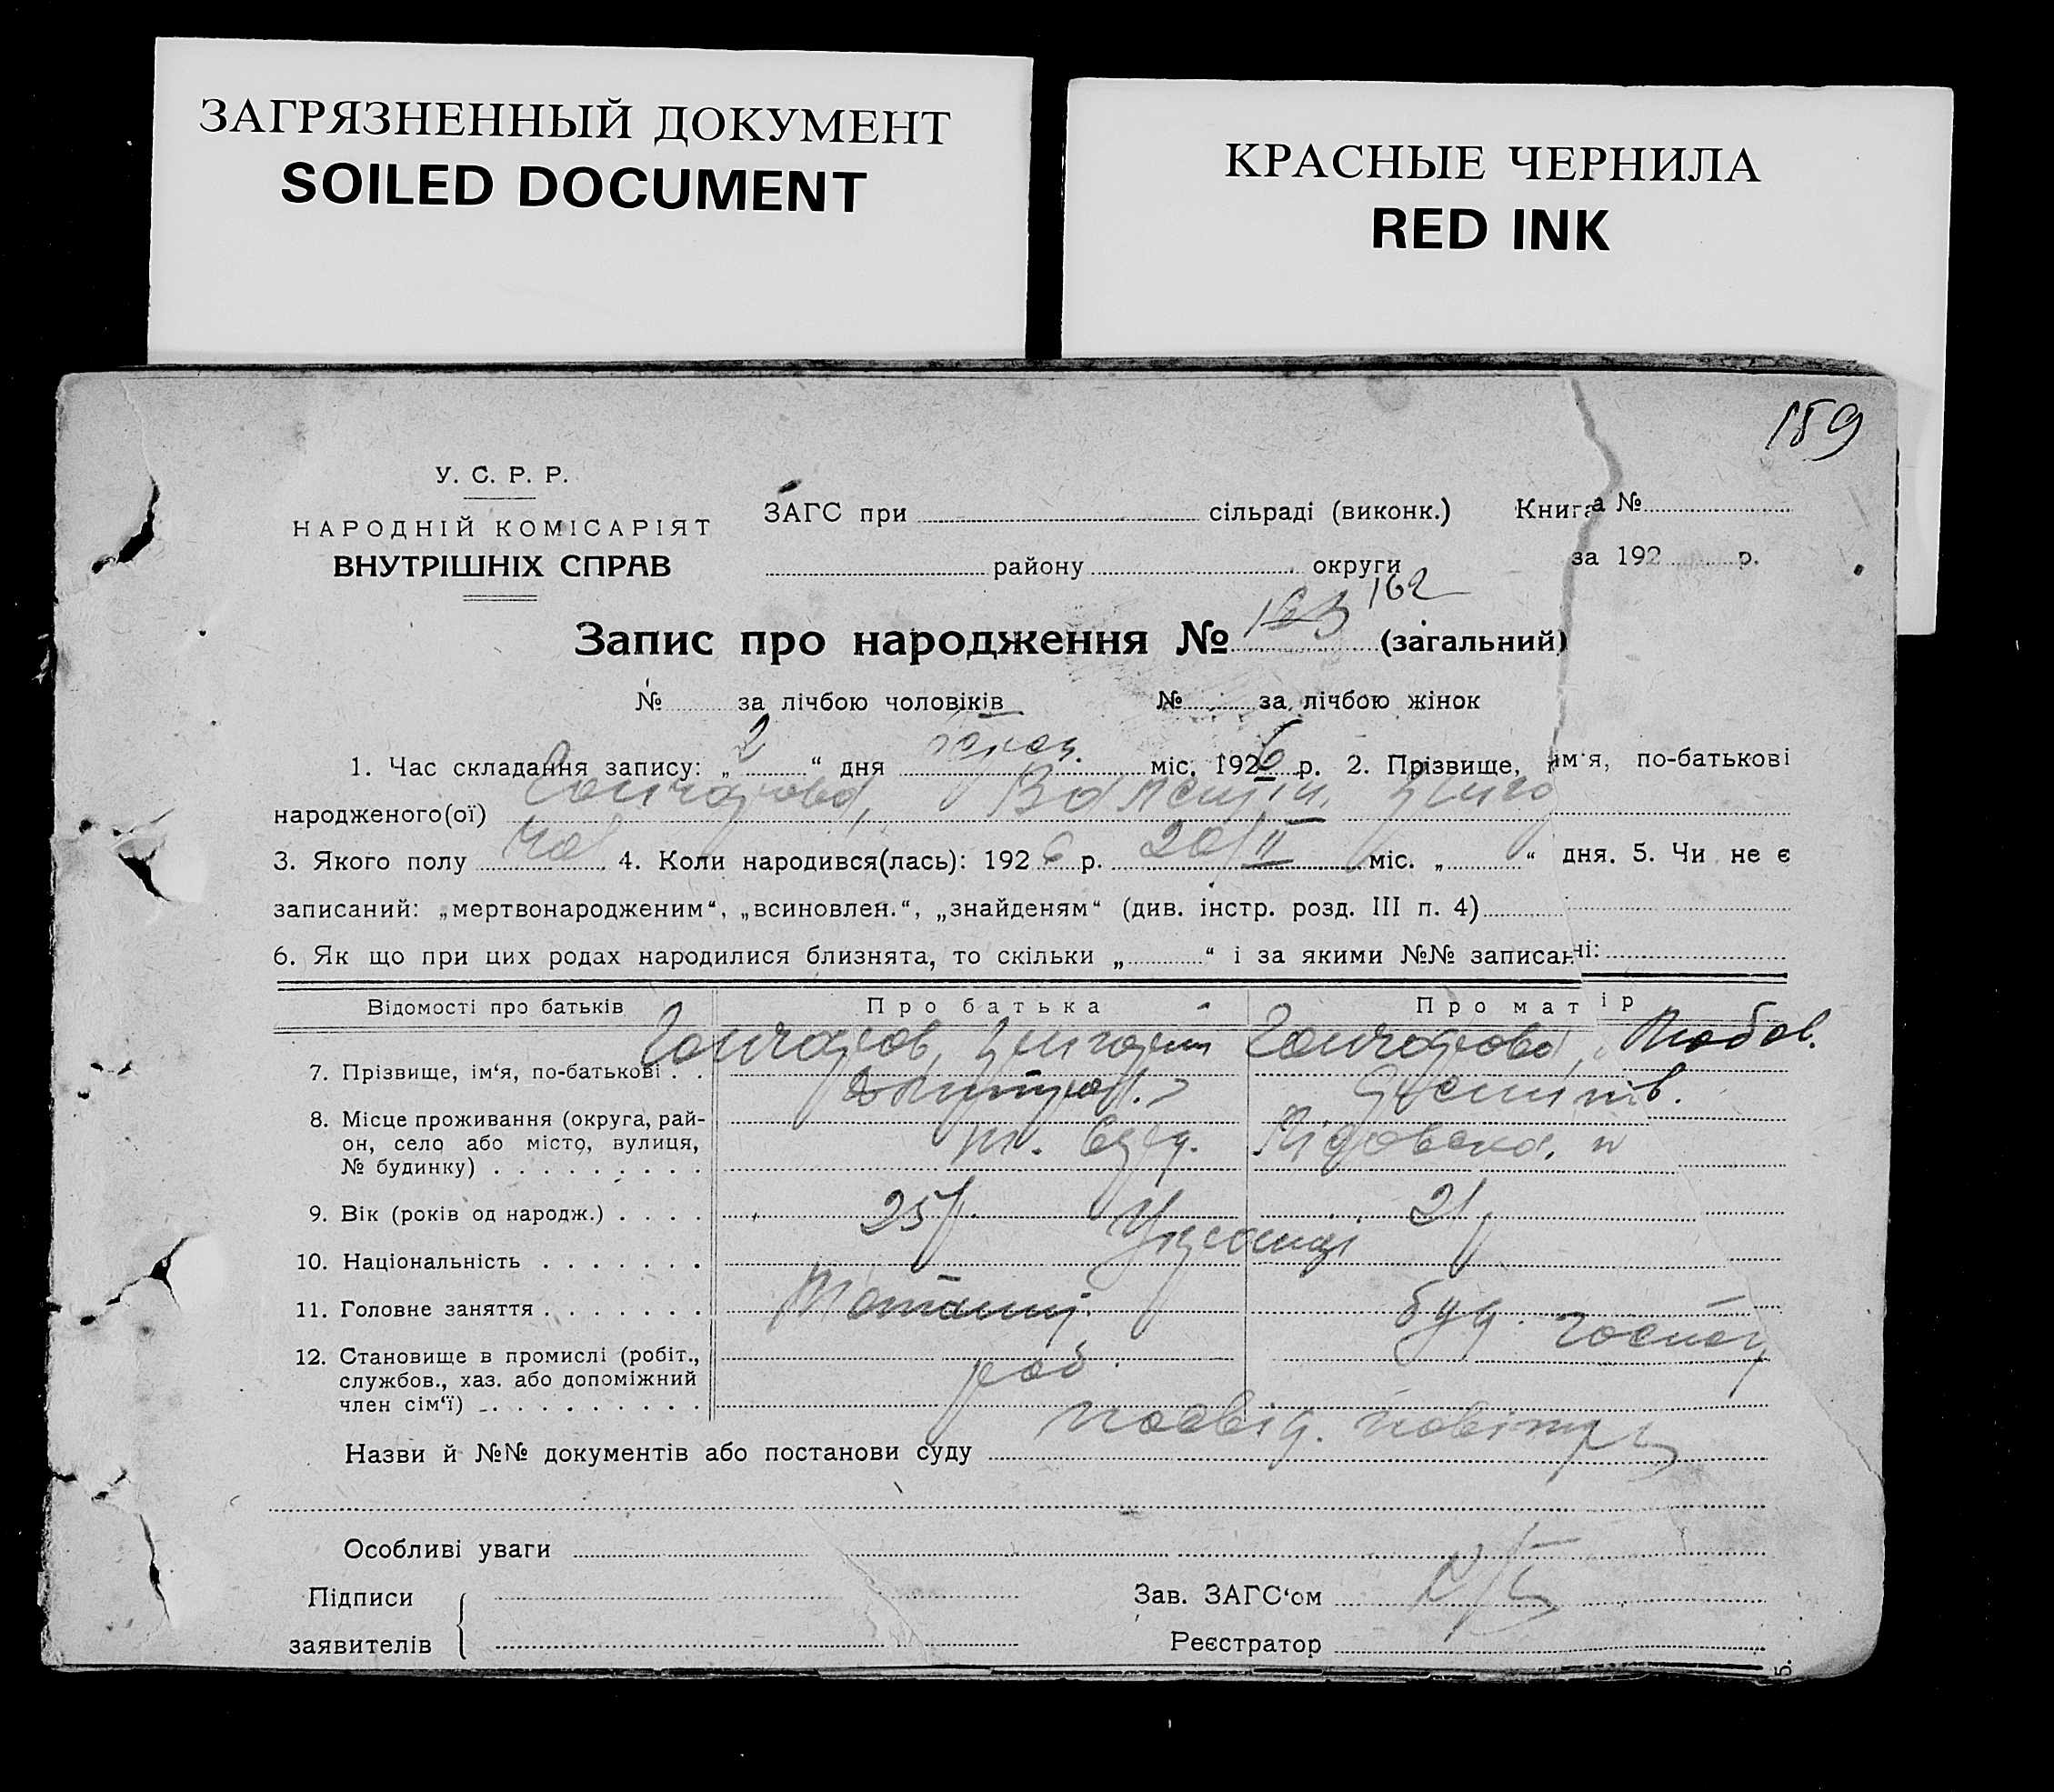 ЗАГРЯЗНЕННЫЙ ДОКУМЕНТ
SOILED DOCUMENT
КРАСНЫЕ ЧЕРНИЛА
RED INK
159
У. С. Р. Р.
НАРОДНІЙ КОМІСАРІЯТ
ВНУТРІШНІХ СПРАВ
ЗАГС при сільраді (виконк.) Книга №
району округи за 192 р.
162
Запис про народження № 163 (загальний)
№ за лічбою чоловіків № за лічбою жінок
1. Час складання запису: „ 2 “ дня міс. 1926 р. 2. Прізвище, ім'я, по-батькові
народженого(ої) Гончарова,
3. Якого полу 4. Коли народився(лась): 1926 р. 20/II міс. „ “ дня. 5. Чи не є
записаний: „мертвонародженим“, „всиновлен.“, „знайденям“ (див. інстр. розд. III п. 4)
6. Як що при цих родах народилися близнята, то скільки „ “ і за якими №№ записані:
Відомості про батьків Про батька Про матір
Гончаров, Гончарова, Любов.
7. Прізвище, ім‘я, по-батькові . .
8. Місце проживання (округа, рай-
он, село або місто, вулиця,
№ будинку) . . . . . . . . .
9. Вік (років од народж.) . . . . 25 21
10. Національність . . . . . . . Українці
11. Головне заняття . . . . . . .
12. Становище в промислі (робіт., роб.
службов., хаз. або допоміжний
член сім‘ї) . . . . . . . . . .
Назви й №№ документів або постанови суду посвід.
Особливі уваги
Підписи Зав. ЗАГС‘ом
заявителів Реєстратор